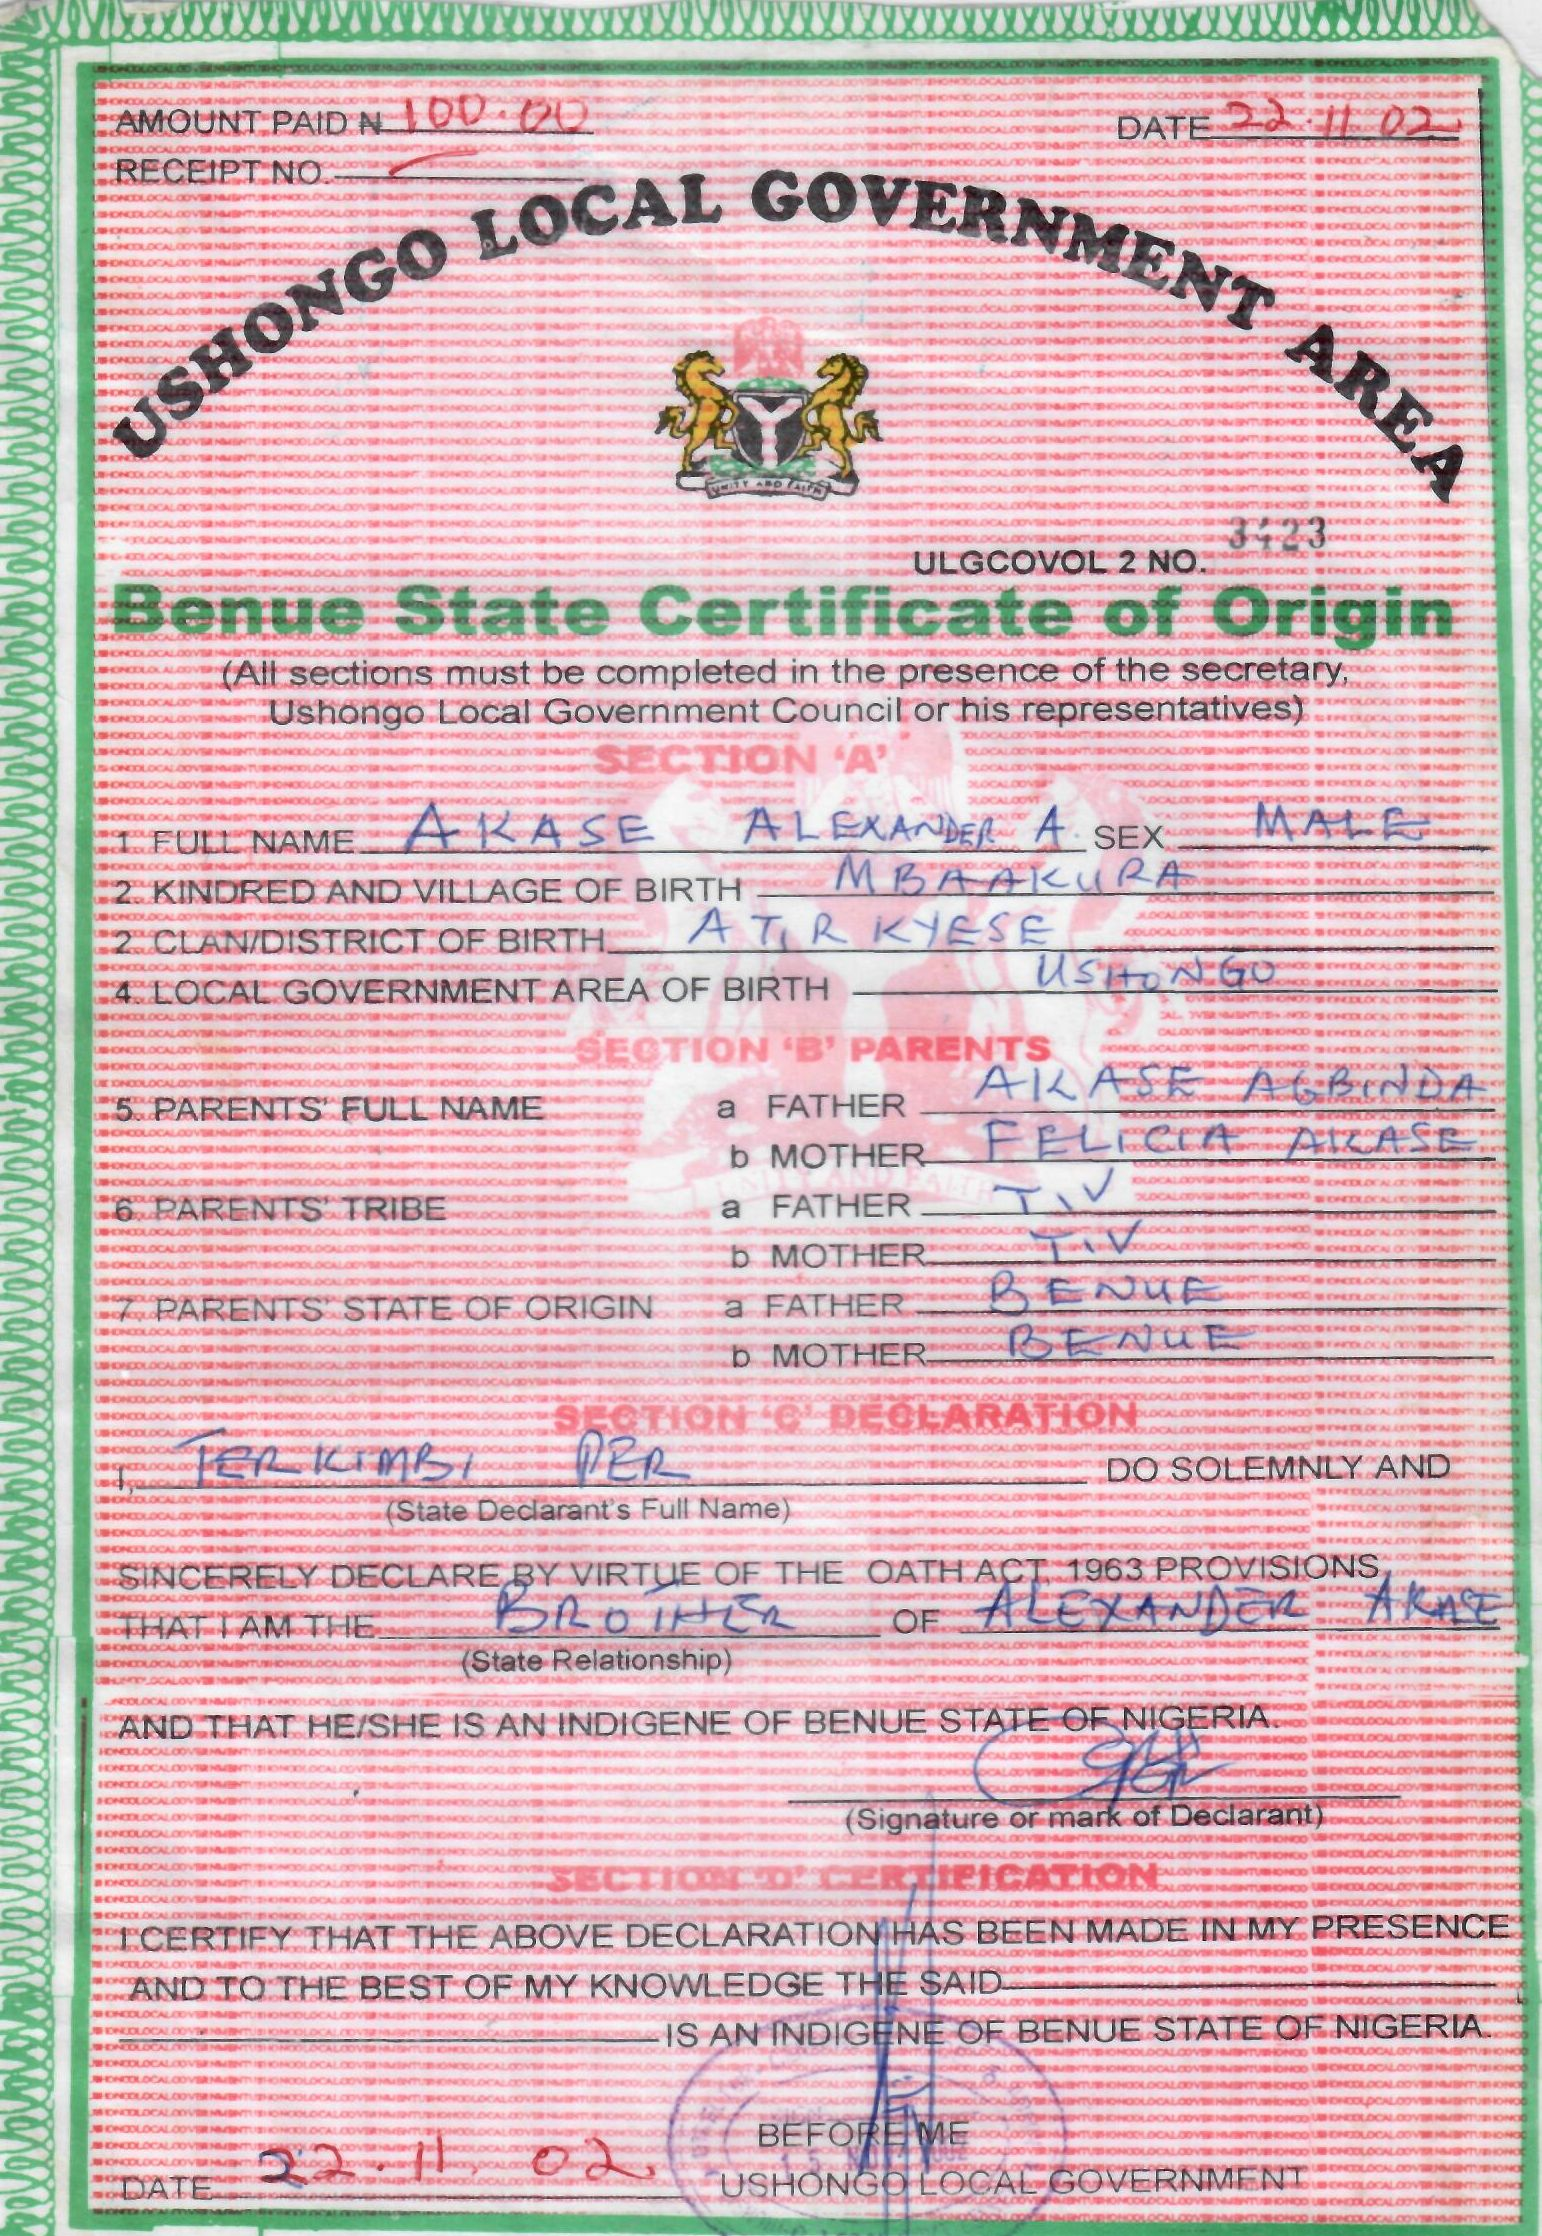 AMOUNT PAID ₦ 100.00 DATE 22.11.02
RECEIPT NO.
USHONGO LOCAL GOVERNMENT AREA
UNITY AND FAITH
ULGCOVOL 2 NO. 3423
Benue State Certificate of Origin
(All sections must be completed in the presence of the secretary,
Ushongo Local Government Council or his representatives)
SECTION 'A'
1 FULL NAME AKASE ALEXANDER A. SEX MALE
2. KINDRED AND VILLAGE OF BIRTH MBAAKURA
2. CLAN/DISTRICT OF BIRTH ATIRKYESE
4. LOCAL GOVERNMENT AREA OF BIRTH USHONGO
SECTION 'B' PARENTS
5. PARENTS' FULL NAME a FATHER AKASE AGBINDA
b MOTHER FELICIA AKASE
6. PARENTS' TRIBE a FATHER TIV
b MOTHER TIV
7. PARENTS' STATE OF ORIGIN a FATHER BENUE
b MOTHER BENUE
SECTION 'C' DECLARATION
I, TERKIMBI PER DO SOLEMNLY AND
(State Declarant's Full Name)
SINCERELY DECLARE BY VIRTUE OF THE OATH ACT, 1963 PROVISIONS
THAT I AM THE BROTHER OF ALEXANDER AKASE
(State Relationship)
AND THAT HE/SHE IS AN INDIGENE OF BENUE STATE OF NIGERIA.
(Signature or mark of Declarant)
SECTION 'D' CERTIFICATION
I CERTIFY THAT THE ABOVE DECLARATION HAS BEEN MADE IN MY PRESENCE
AND TO THE BEST OF MY KNOWLEDGE THE SAID
IS AN INDIGENE OF BENUE STATE OF NIGERIA.
BEFORE ME
DATE 22.11.02 USHONGO LOCAL GOVERNMENT